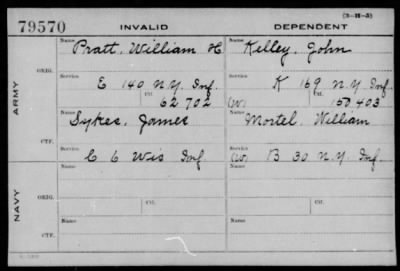 (3-H-5)
79570 INVALID DEPENDENT
Name Pratt, William H Name Kelley, John
ORIG.
Service E 140 N.Y. Inf Service K 169 N.Y. Inf
Ctf. 62702 (W) Ctf. 150403
ARMY
Name Sykes, James Name Mortel, William
CTF.
Service C 6 Wis Inf Service (W) B 30 N.Y. Inf.
Name Name
ORIG.
Service Ctf. Service Ctf.
NAVY
Name Name
CTF.
Service Service